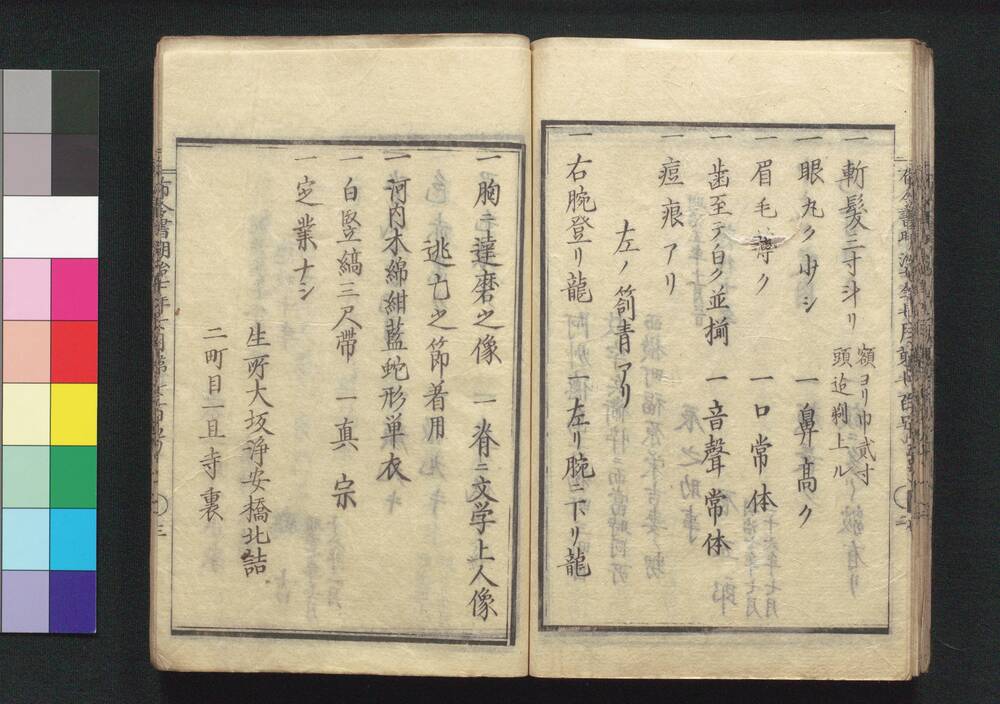 一 斬髪三寸斗リ 額ヨリ巾貳寸
頭迠判上ル
一 眼丸ク少シ 一 鼻髙ク
一 眉毛薄ク 一 口常体
一 歯至テ白ク並揃 一 音聲常体
一 痘痕アリ
左ノ㔟青アリ
一 右腕登リ龍 一 左リ腕ニ下リ龍
一 胸ニ達磨之像 一 脊ニ文学上人像
逃亡之節着用
一 河内木綿紺藍蛇形単衣
一 白竪縞三尺帶 一 真宗
一 定業ナシ
生所大坂浄安橋北詰
二町目一且寺裏